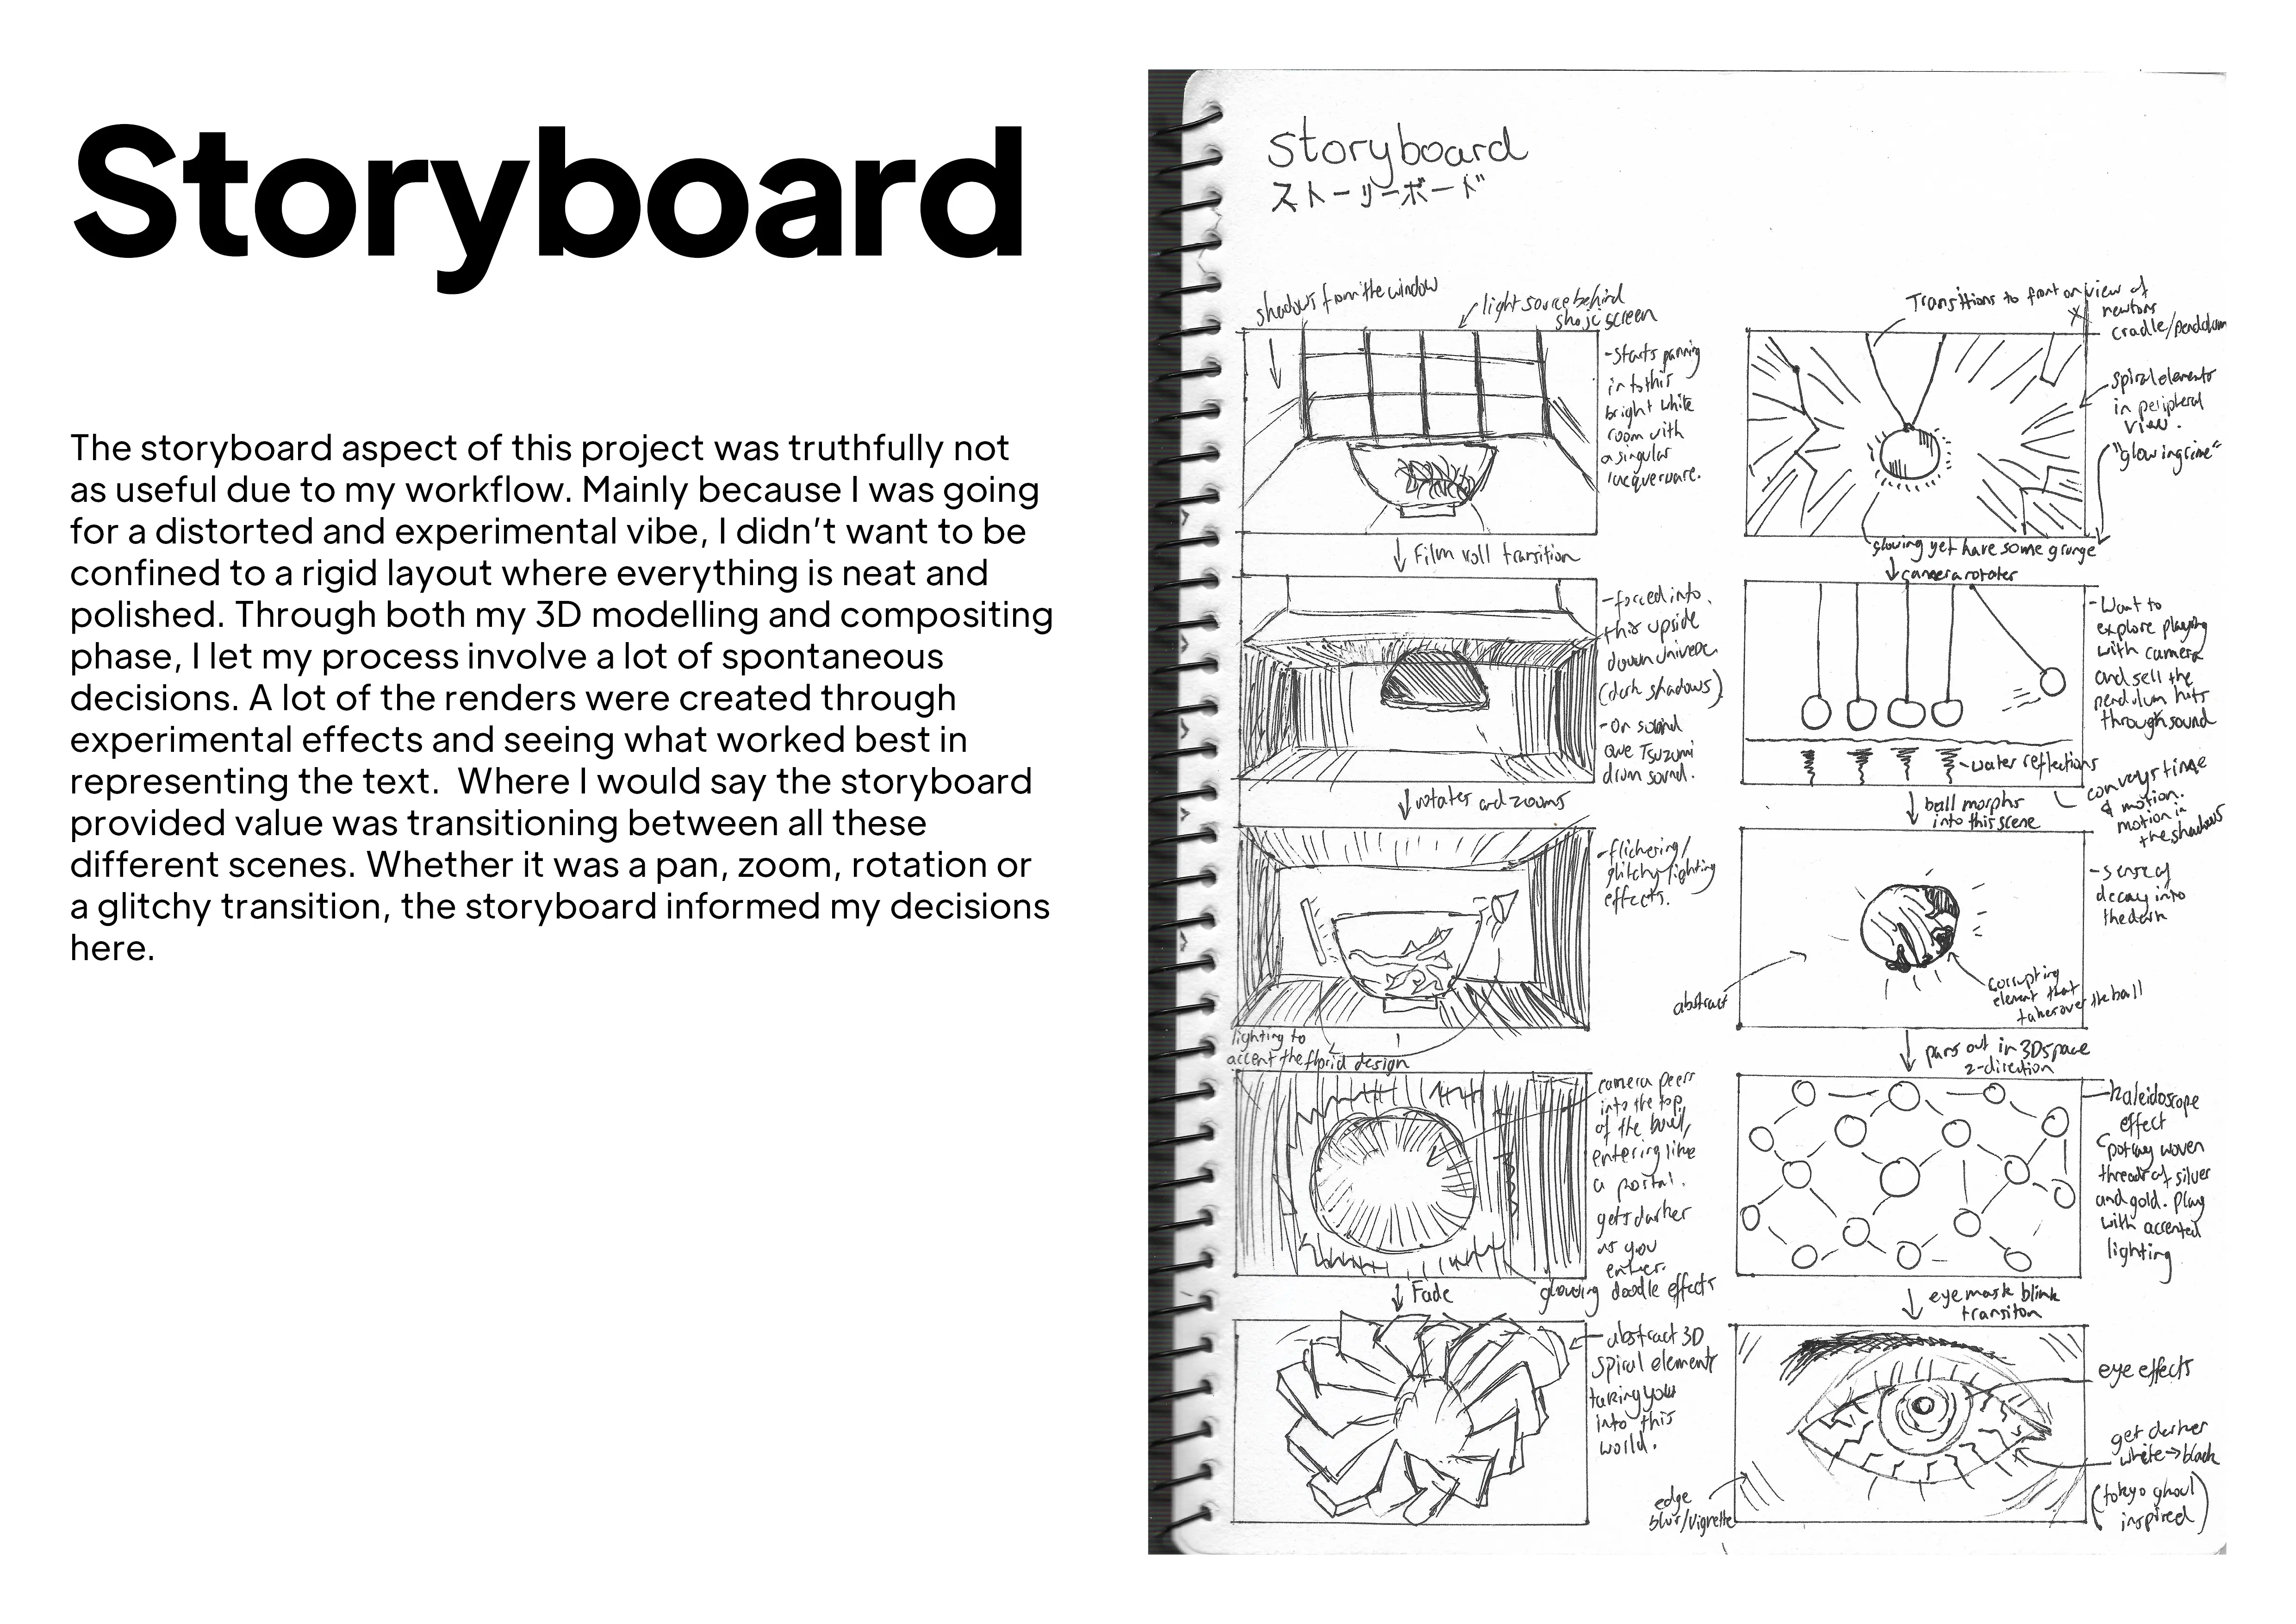 Storyboard
The storyboard aspect of this project was truthfully not
as useful due to my workflow. Mainly because I was going
for a distorted and experimental vibe, I didn't want to be
confined to a rigid layout where everything is neat and
polished. Through both my 3D modelling and compositing
phase, I let my process involve a lot of spontaneous
decisions. A lot of the renders were created through
experimental effects and seeing what worked best in
representing the text.  Where I would say the storyboard
provided value was transitioning between all these
different scenes. Whether it was a pan, zoom, rotation or
a glitchy transition, the storyboard informed my decisions
here.
Storyboard
ストーリーボード
shadows from the window
light source behind
shoji screen
-starts panning
into this
bright white
room with
a singular
lacquerware.
Film roll transition
-forced into
this upside
down universe
(dark shadows)
-On sound
que Tsuzumi
drum sound.
rotates and zooms
-flickering/
glitchy lighting
effects.
lighting to
accent the florid design
camera peers
into the top
of the bowl,
entering like
a portal.
gets darker
as you
enter.
glowing doodle effects
Fade
abstract 3D
spiral elements
taking you
into this
world.
Transitions to front on view of
newtons
cradle/pendulum
spiral elements
in peripheral
view.
glowing yet have some grunge
camera rotates
-Want to
explore playing
with camera
and sell the
pendulum hits
through sound
-water reflections
conveys time
& motion.
motion in
the shadows
ball morphs
into this scene
-sense of
decay into
the dark
abstract
corrupting
element that
takes over the ball
pans out in 3D space
z-direction
kaleidoscope
effect
woven
threads of silver
and gold. Play
with accented
lighting
eye mask blink
transiton
eye effects
get darker
white→black
(tokyo ghoul
inspired)
edge
blur/vignette